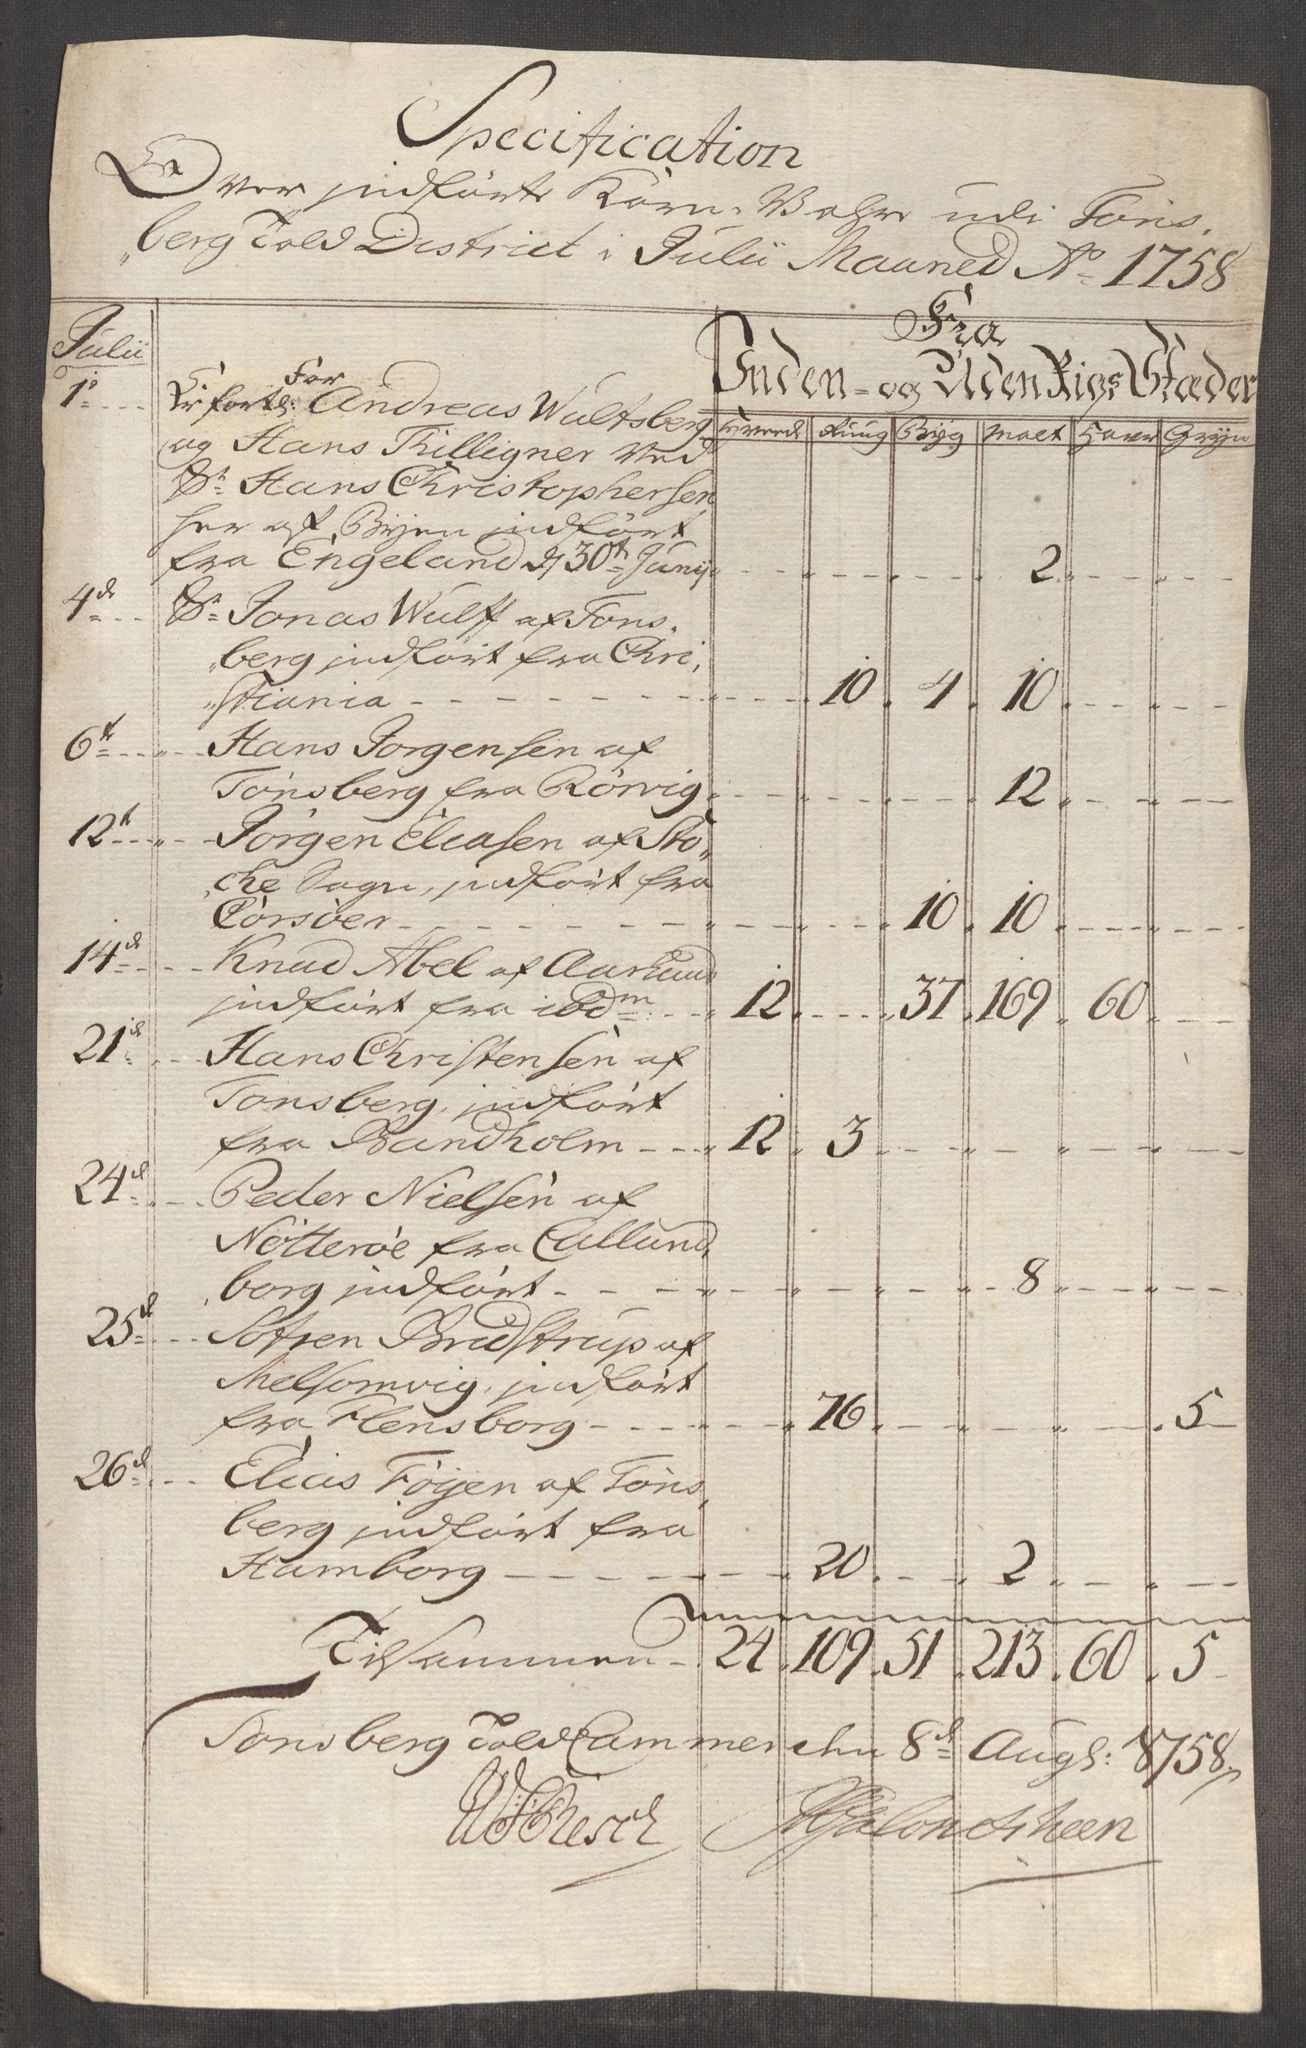 Specification
Over indførte Korn-Vahre udi Tøns-
berg Told District i Julii Maaned Ao 1758
Julii
Fra
Inden- og Uden Rigs Stæder
Hvede Rug Byg Malt Havre Gryn
1o For
Andreas Wulfsberg
og Hans Killigner ved
Sr Hans Christophersen
her af Byen indført
fra Engeland d 30te Junij - - - 2 - -
4de Sr Jonas Wulff af Tøns-
berg indført fra Chri-
stiania - 10 4 10 - -
6te Hans Jørgensen af
Tønsberg fra Rørvig - - - 12 - -
12te Jørgen Eliasen af Sto-
che Sogn, indført fra
Corsøer - - 10 10 - -
14de Knud Abel af Aarhuus
indført fra ibdm 12 - 37 169 60 -
21de Hans Christensen af
Tønsberg, indført
fra Bandholm 12 3 - - - -
24de Peder Nielsen af
Nøtterøe fra Callund-
borg indført - - - 8 - -
25de Søfren Bredstrup af
Melsomvig, indført
fra Flensborg - 76 - - - 5
26de Elias Føyen af Tøns-
berg indført fra
Hamborg - 20 - 2 - -
Tilsammen 24 109 51 213 60 5
Tønsberg Told Cammer den 8de Augt: 1758